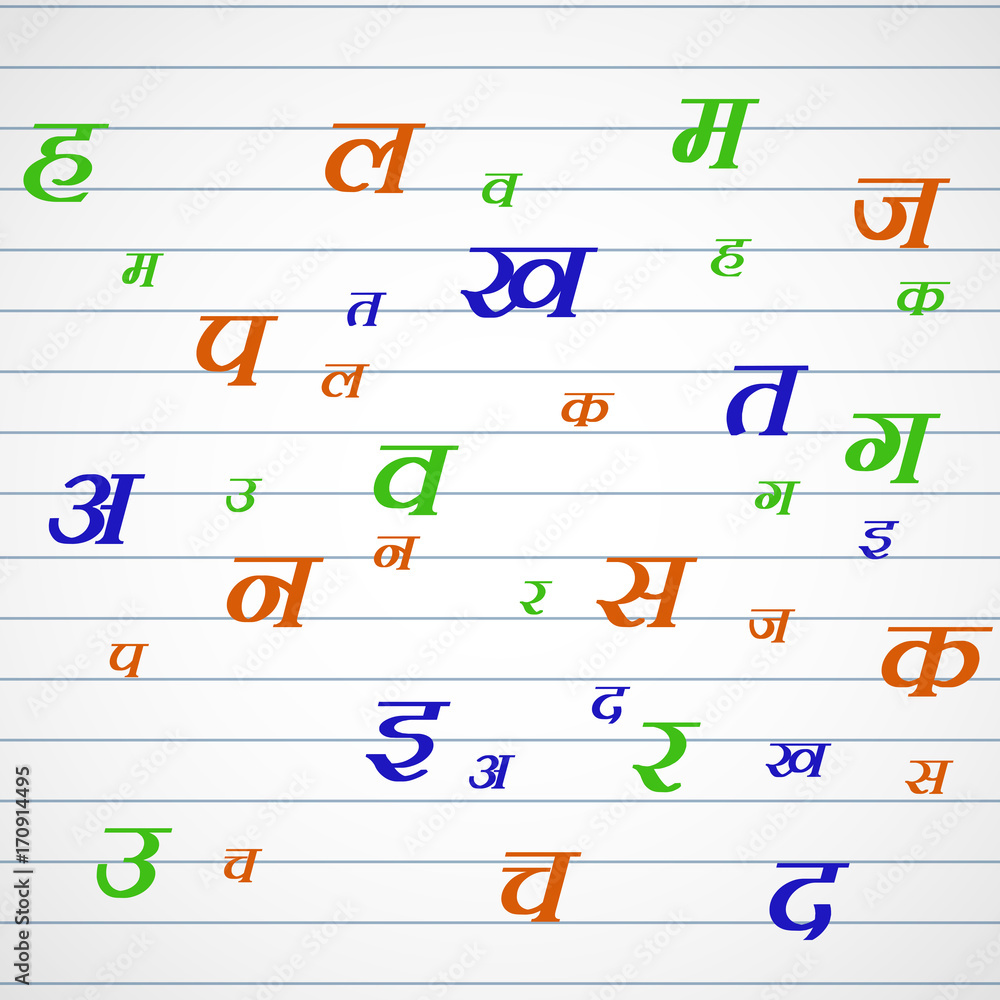 ह ल म
व ज
म ख ह
त क
प ल
क त
ग
अ उ व ग
न इ
न र स ज
प क
इ द र
अ ख स
उ च च द
Adobe Stock | #170914495